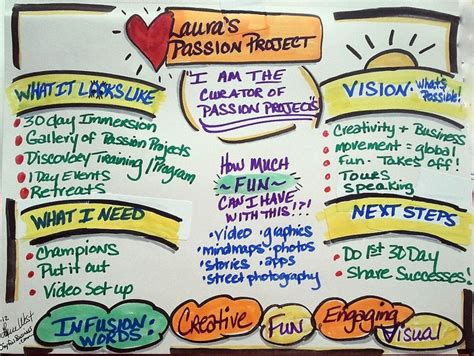 Laura's
PASSION PROJECT
"I AM THE
CURATOR OF
PASSION PROJECTS"
WHAT IT LOOKS LIKE
30 day Immersion
Gallery of Passion Projects
Discovery Training/Program
1 Day Events
Retreats
WHAT I NEED
Champions
Put it out
Video Set up
HOW MUCH
~FUN~
CAN I HAVE
WITH THIS!?!
video • graphics
mindmaps • photos
stories • apps
street photography
VISION: What's
Possible!
Creativity + Business
movement = global
Fun - Takes off!
Tours
speaking
NEXT STEPS
Do 1st 30 Day
Share Successes!
INFUSION
WORDS:
Creative
Fun
Engaging
Visual